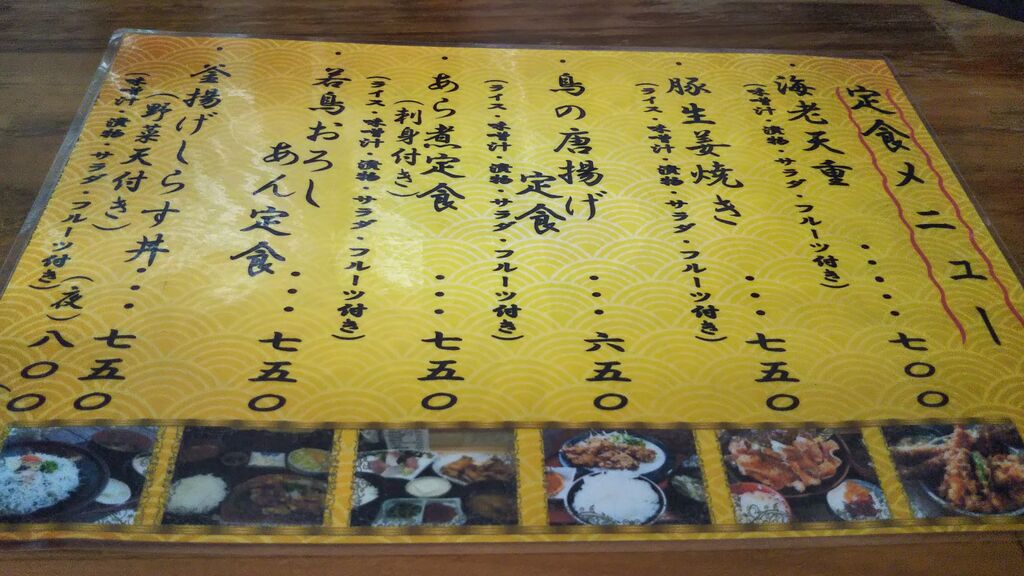 定食メニュー
・海老天重・・・・・七〇〇
(味噌汁・漬物・サラダ・フルーツ付き)
・豚生姜焼き・・・七五〇
(ライス・味噌汁・漬物・サラダ・フルーツ付き)
・鳥の唐揚げ
定食・・・六五〇
(ライス・味噌汁・漬物・サラダ・フルーツ付き)
・あら煮定食・・・七五〇
(刺身付き)
(ライス・味噌汁・漬物・サラダ・フルーツ付き)
・若鳥おろし
あん定食・・・七五〇
・釜揚げしらす丼・・・・七五〇
(野菜天付き)
(夜)八〇〇
(味噌汁・漬物・サラダ・フルーツ付き)